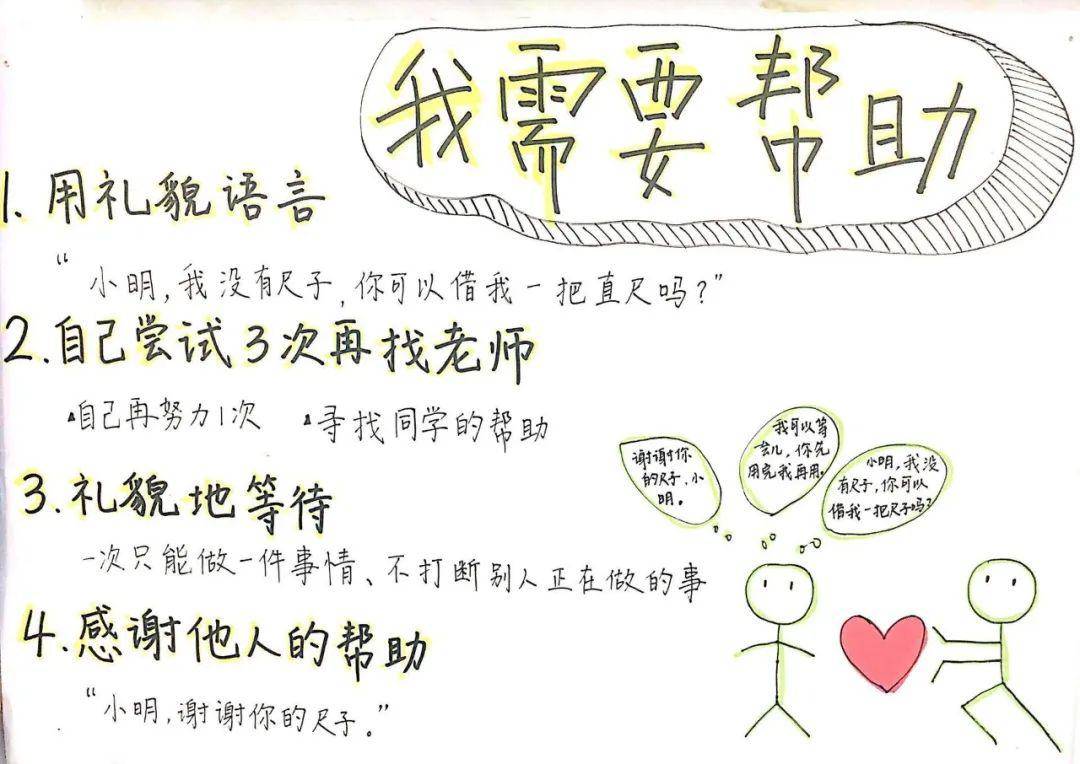 我需要帮助
1. 用礼貌语言
“小明,我没有尺子,你可以借我一把直尺吗?”
2. 自己尝试3次再找老师
▲自己再努力1次 ▲寻找同学的帮助
3. 礼貌地等待
一次只能做一件事情、不打断别人正在做的事
4. 感谢他人的帮助
“小明,谢谢你的尺子。”
谢谢你
的尺子,小
明。
我可以等
会儿,你先
用完我再用。
小明,我没
有尺子,你可以
借我一把尺子吗?